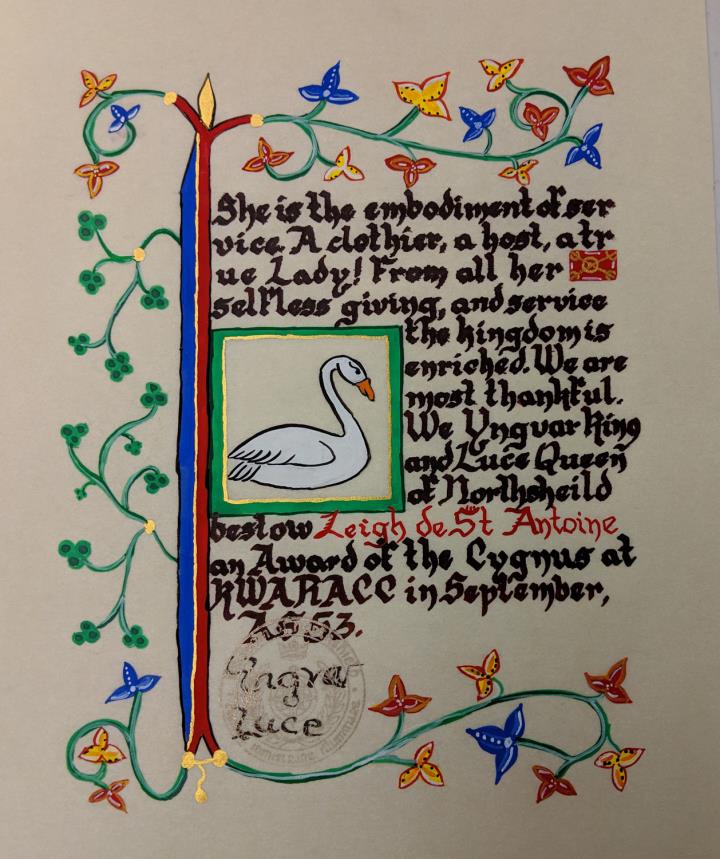 She is the embodiment of ser
vice. A clothier, a host, a tr
ue Lady! From all her
selfless giving, and service
the kingdom is
enriched. We are
most thankful.
We Yngvar King
and Luce Queen
of Northsheild
bestow Leigh de St Antoine
an Award of the Cygnus at
KWARACC in September,
A.S 53.
Yngvar
Luce